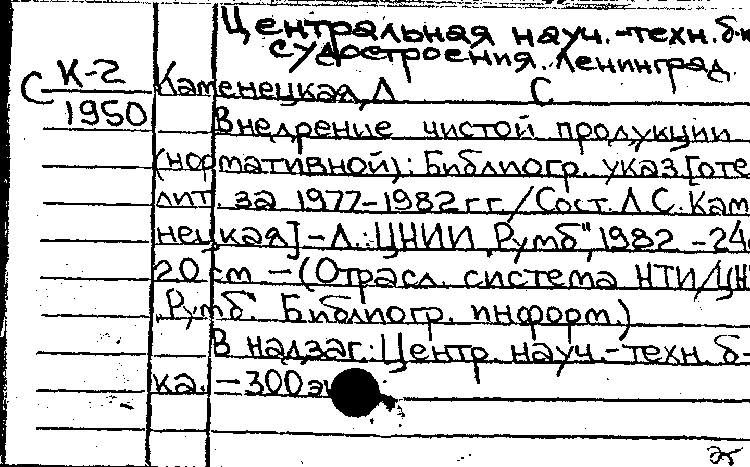 Центральная науч.-техн. б-к
судостроения. Ленинград.
С К-2
1950
Каменецкая, Л С
Внедрение чистой продукции
(нормативной): Библиогр. указ. [оте
лит. за 1977-1982 г.г. / Сост. Л. С. Кам
нецкая] - Л.: ЦНИИ „Румб", 1982 - 24
20 см - (Отрасл. система НТИ/ЦН
„Румб". Библиогр. информ.)
В надзаг.: Центр. науч.-техн. б-
ка. - 300 э